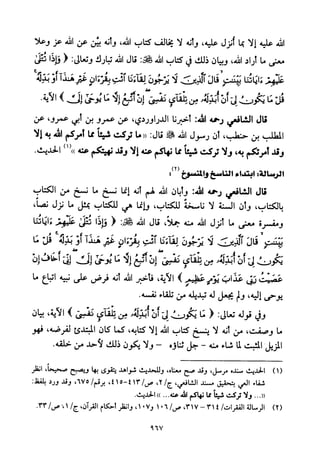 الله عليه إلا بما أنزل عليه، وأنه لا يخالف كتاب الله، وأنه بيّن عن الله عز وعلا
معنى ما أراد الله، وبيان ذلك في كتاب الله ﷻ: قال الله تبارك وتعالى: ﴿ وَإِذَا تُتْلَىٰ
عَلَيْهِمْ ءَايَاتُنَا بَيِّنَـٰتٍ ۙ قَالَ ٱلَّذِينَ لَا يَرْجُونَ لِقَآءَنَا ٱئْتِ بِقُرْءَانٍ غَيْرِ هَـٰذَآ أَوْ بَدِّلْهُ ۚ
قُلْ مَا يَكُونُ لِىٓ أَنْ أُبَدِّلَهُۥ مِن تِلْقَآئِ نَفْسِىٓ ۖ إِنْ أَتَّبِعُ إِلَّا مَا يُوحَىٰٓ إِلَىَّ ﴾ الآية.
قال الشافعي رحمه الله: أخبرنا الدراوردي، عن عمرو بن أبي عمرو، عن
المطلب بن حنطب، أن رسول الله ﷺ قال: «ما تركت شيئاً مما أمركم الله به إلا
وقد أمرتكم به، ولا تركت شيئاً مما نهاكم عنه إلا وقد نهيتكم عنه»(١) الحديث.
الرسالة: ابتداء الناسخ والمنسوخ(٢):
قال الشافعي رحمه الله: وأبان الله لهم أنه إنما نسخ ما نسخ من الكتاب
بالكتاب، وأن السنة لا ناسخةٌ للكتاب، وإنما هي للكتاب بمثل ما نزل نصاً،
ومفسرة معنى ما أنزل الله منه جملاً، قال الله ﷻ: ﴿ وَإِذَا تُتْلَىٰ عَلَيْهِمْ ءَايَاتُنَا
بَيِّنَـٰتٍ ۙ قَالَ ٱلَّذِينَ لَا يَرْجُونَ لِقَآءَنَا ٱئْتِ بِقُرْءَانٍ غَيْرِ هَـٰذَآ أَوْ بَدِّلْهُ ۚ قُلْ مَا
يَكُونُ لِىٓ أَنْ أُبَدِّلَهُۥ مِن تِلْقَآئِ نَفْسِىٓ ۖ إِنْ أَتَّبِعُ إِلَّا مَا يُوحَىٰٓ إِلَىَّ ۖ إِنِّىٓ أَخَافُ إِنْ
عَصَيْتُ رَبِّى عَذَابَ يَوْمٍ عَظِيمٍ ﴾ الآية، فأخبر الله أنه فرض على نبيه اتباع ما
يوحى إليه، ولم يجعل له تبديله من تلقاء نفسه.
وفي قوله تعالى: ﴿ مَا يَكُونُ لِىٓ أَنْ أُبَدِّلَهُۥ مِن تِلْقَآئِ نَفْسِىٓ ﴾ الآية، بيان
ما وصفت، من أنه لا ينسخ كتاب الله إلا كتابه، كما كان المبتدئ لفرضه، فهو
المزيل المثبت لما شاء منه - جل ثناؤه - ولا يكون ذلك لأحد من خلقه.
(١) الحديث سنده مرسل، وقد صح معناه، وللحديث شواهد يتقوى بها ويصبح صحيحاً، انظر
شفاء العي بتحقيق مسند الشافعي، ج/٢، ص/٤١٣-٤١٥، برقم/٦٧٥، وقد ورد بلفظ:
«... ولا تركت شيئاً مما نهاكم الله عنه...» الحديث.
(٢) الرسالة الفقرات/٣١٤-٣١٧، ص/١٠٦ و١٠٧، وانظر أحكام القرآن، ج/١، ص/٣٣.
٩٦٧